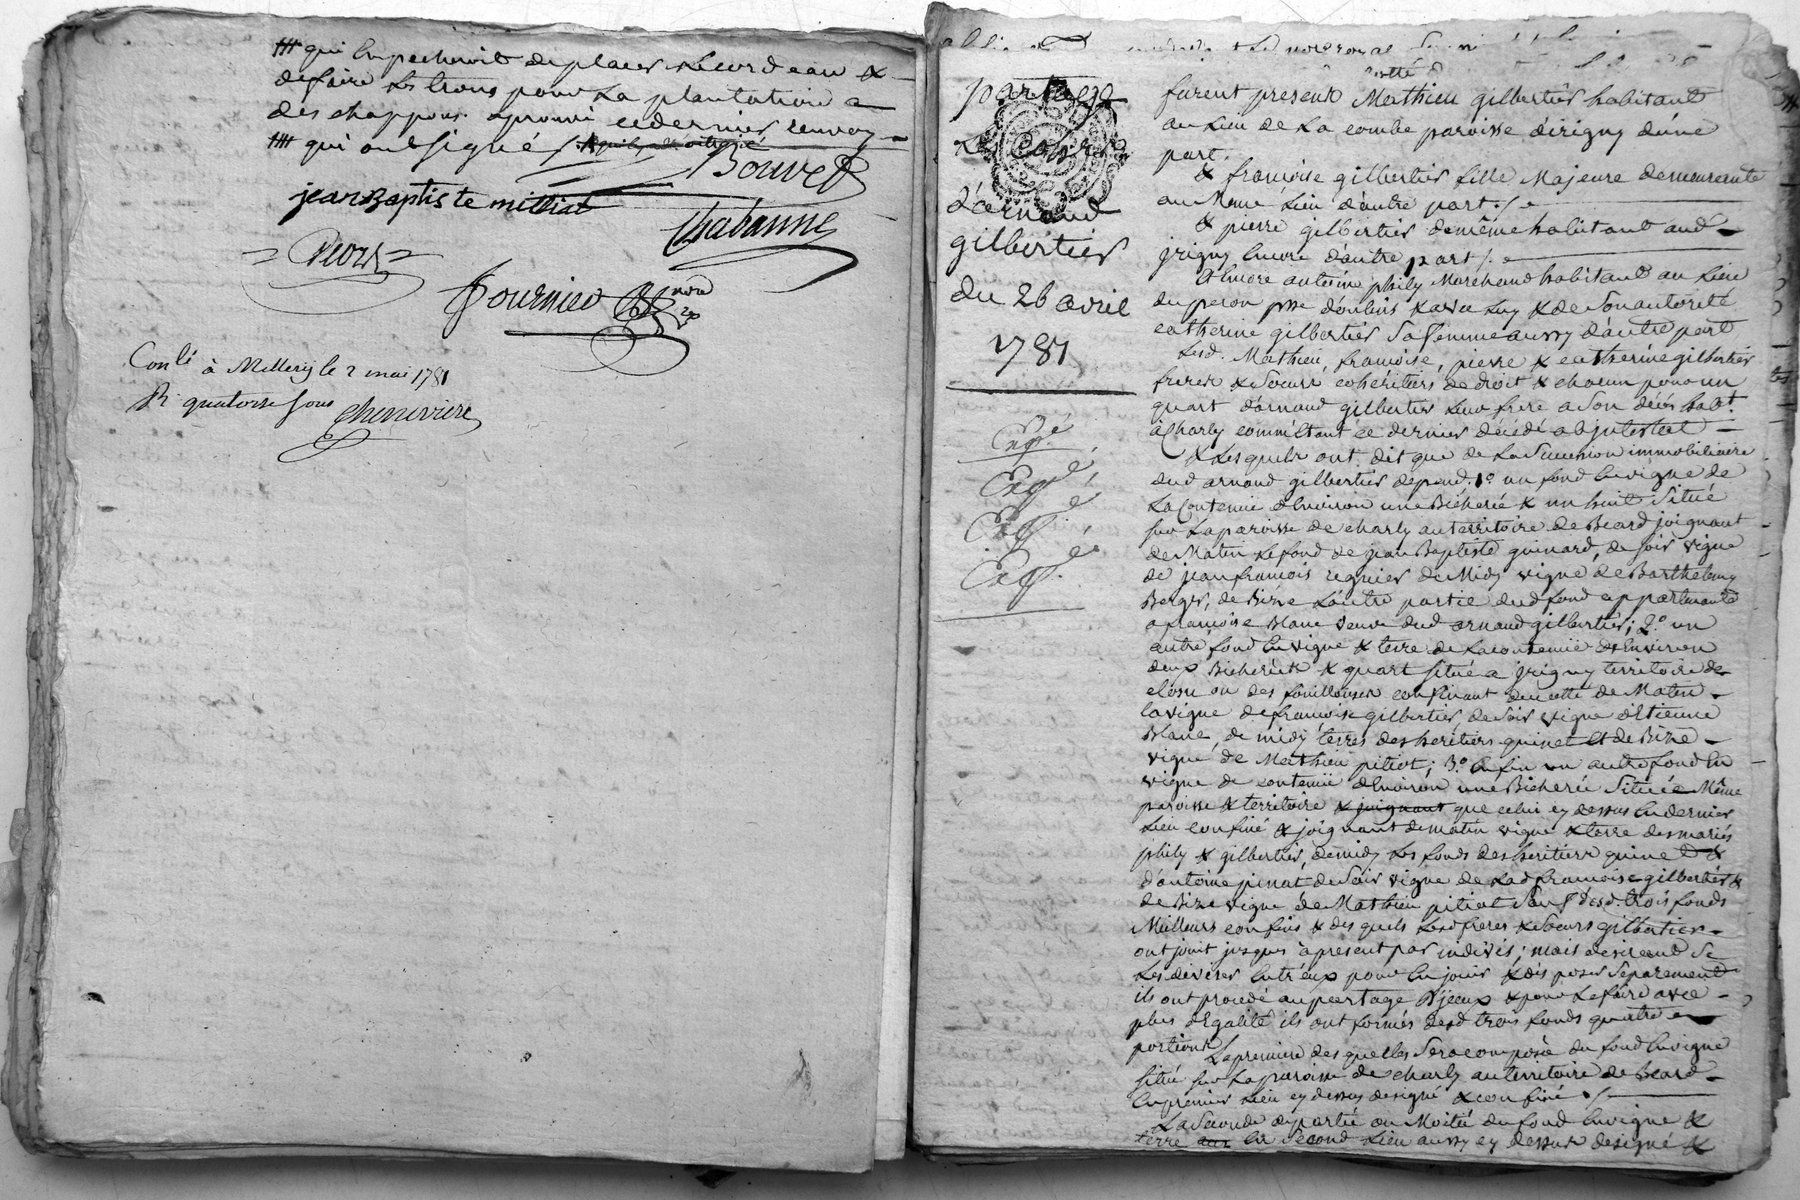 qui Empechoit de placer le cordeau &
de faire les trous pour la plantation
des chappons approuvé ce dernier renvoy
qui ont signé
Bouvet
jean Baptiste milliat
Chabanne
Fournier
Conlé à Millery le 2 mai 1781
R. quatorze sous
Chenevriere
partage
d'arnaud
gilbertier
du 26 avril
1781
Exp.é
Exp.é
Exp.é
Exp.é
furent presents Mathieu gilbertier habitant
au lieu de La combe paroisse dirigny d'une
part.
& françoise gilbertier fille Majeure demeurante
au Même lieu d'autre part
& pierre gilbertier demême habitant aud.
jrigny Encore d'autre part
& Encore antoine phily Marchand habitant au Lieu
du peron psse doulins & avec luy & de son autorité
catherine gilbertier sa femme aussy d'autre part
Lesd. Mathieu, françoise, pierre & catherine gilbertier
freres & soeurs cohéritiers de droit & chacun pour un
quart d'arnaud gilbertier leur frere a son décés habt.
à Charly comme Etant ce dernier décédé ab jntestat
& Lesquels ont dit que de La Succession immobiliaire
dud arnaud gilbertier depend. 1º un fond En vigne de
La Contenue d'Environ une Bicherée & un huit Situé
sur La paroisse de charly au territoire de Beard joignant
de Matin le fond de jean Baptiste guinard, de soir vigne
de jean françois regnier de Midy vigne de Barthelemy
Berger, de Bize L'autre partie dud fond appartenante
a françoise Blanc veuve dud arnaud gilbertier; 2.º un
autre fond En vigne & terre de La contenue d'Environ
deux Bicherées & quart situé a jrigny territoire de
closu ou des fouilleuses confinant du côtté de Matin
la vigne de françoise gilbertier, de soir vigne d'Etienne
Blanc, de midy terres des heritiers guinet Et de Bize
vigne de Mathieu pitiot; 3.º Enfin un autre fond En
vigne de contenue d'Environ une Bicherée Située Même
paroisse & territoire & joignant que celui cy dessus En dernier
Lieu confiné & joignant de matin vigne & terre des mariés
phily & gilbertier, de midy Les fonds des heritiers guinet &
d'antoine pinat de Soir vigne de Lad françoise gilbertier &
de Bize vigne de Mathieu pitiot sauf desd. trois fonds
Meilleurs confins & des quels Lesd freres & soeurs gilbertier
ont jouit jusques à present par indivis; mais desirant se
Les diviser Entr'eux pour En jouir & disposer séparement
ils ont procedé au partage D'jceux & pour Le faire avec
plus d'Egalité ils ont formés desd trois fonds quatre
portions
La premiere des quelles Sera composée du fond En vigne
situé sur La paroisse de charly au territoire de Beard
En premier Lieu cy dessus designé & confiné
La Seconde de partie ou Moitié du fond En vigne &
terre En Second Lieu aussy cy dessus designé &